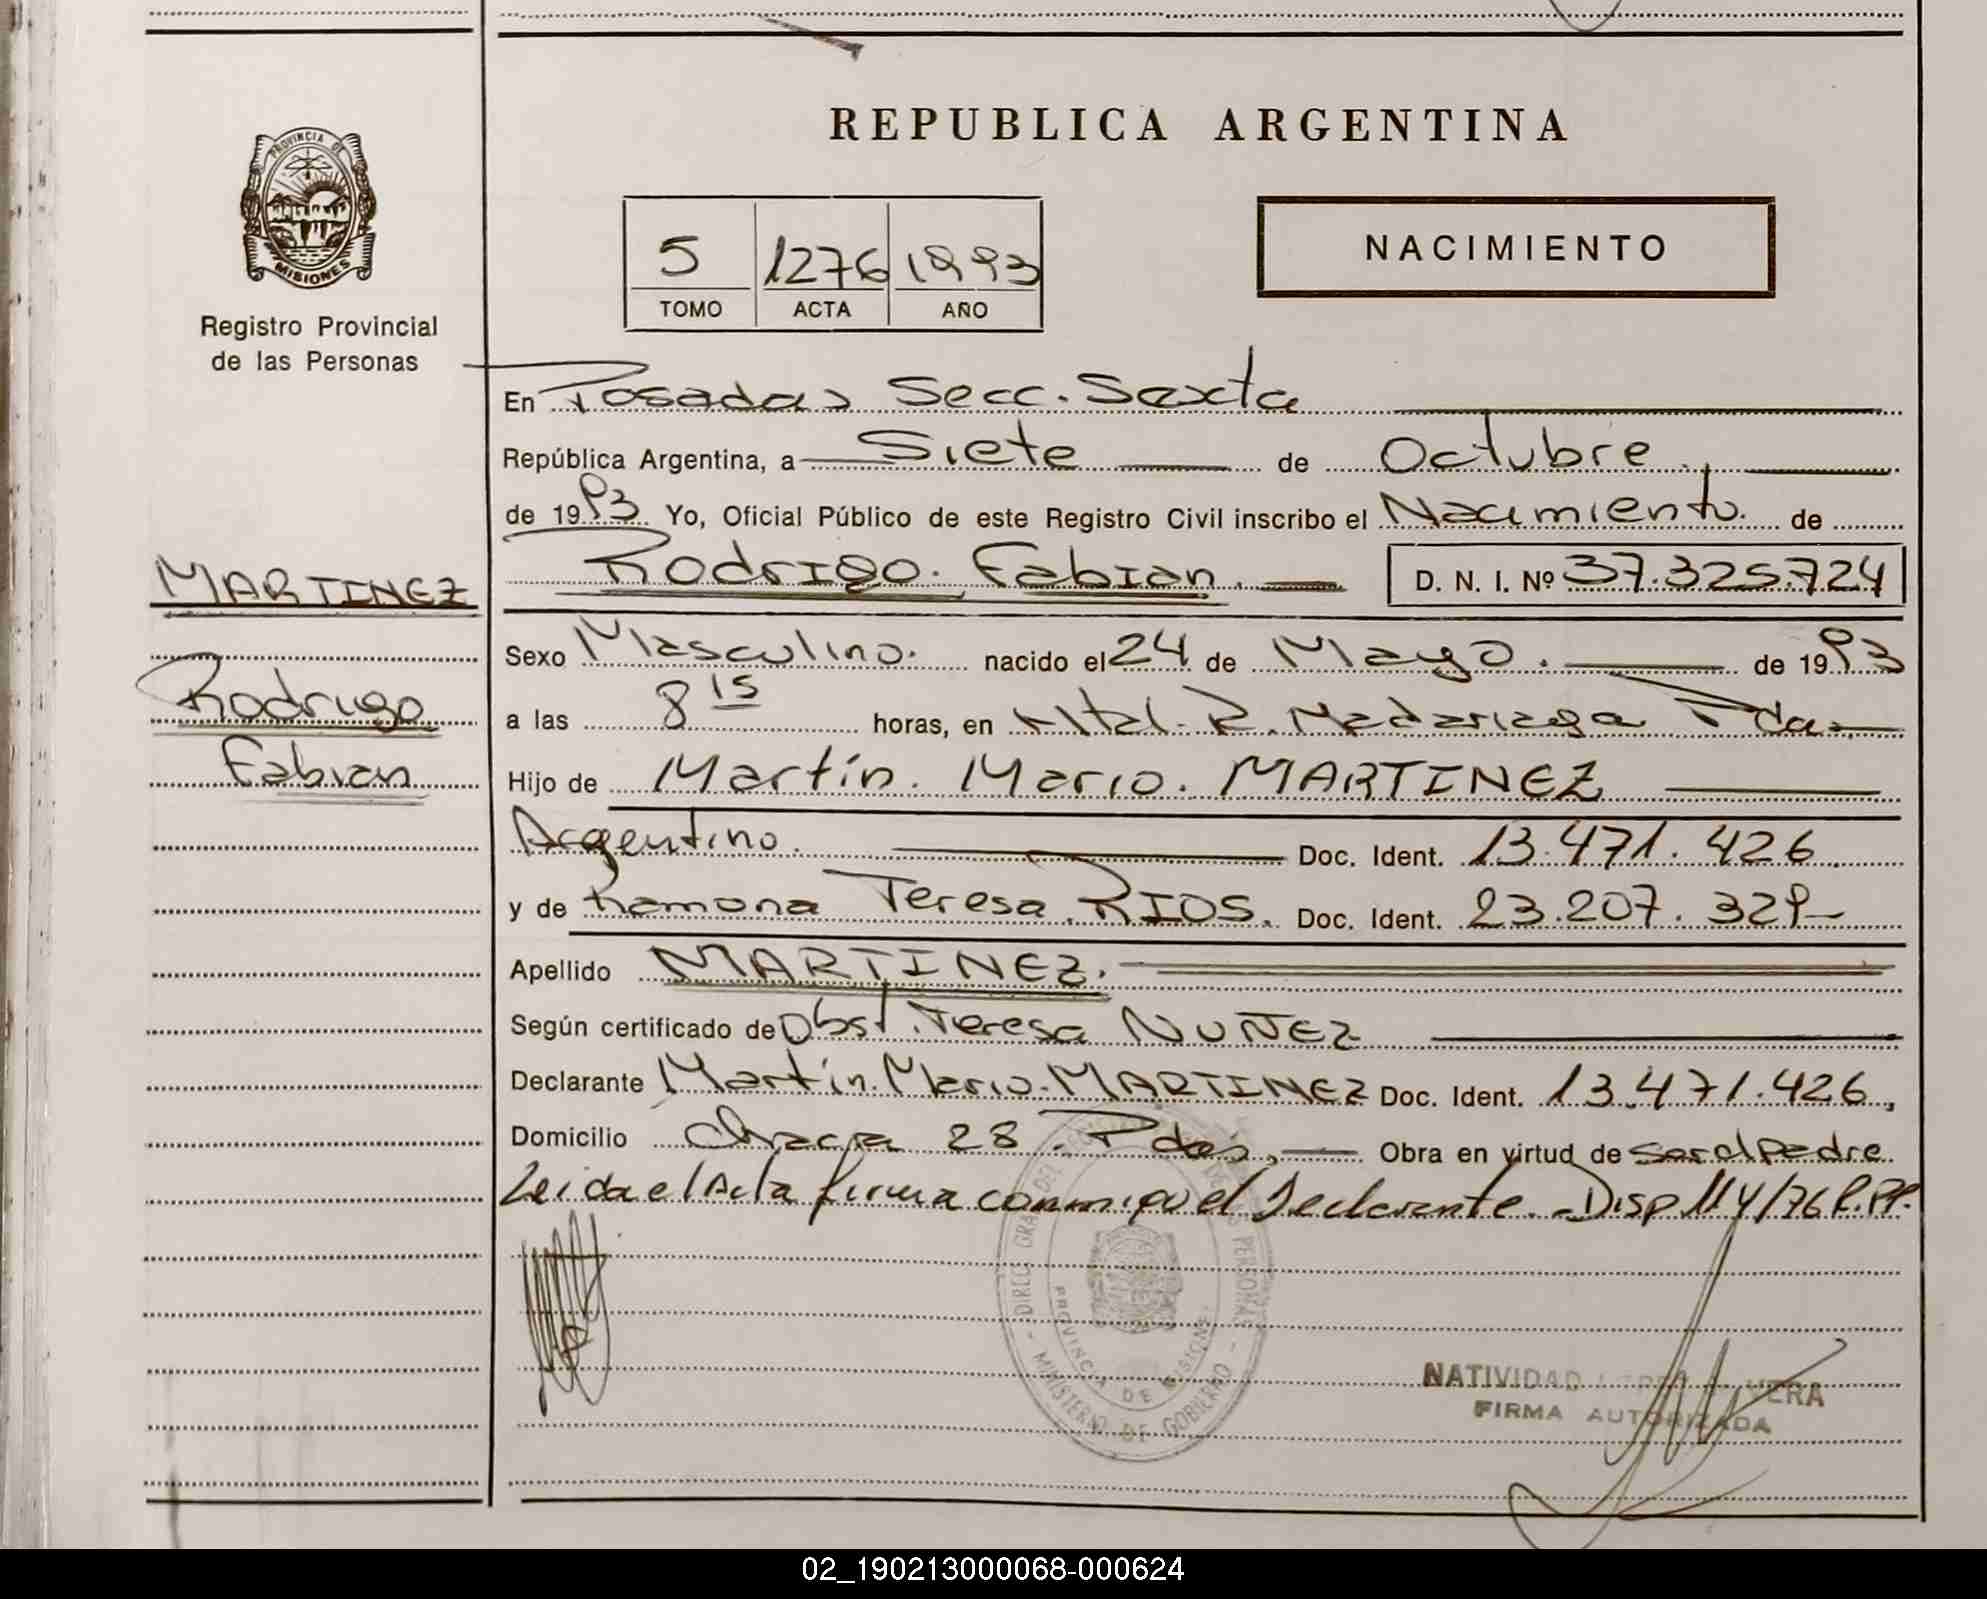 PROVINCIA DE
MISIONES
Registro Provincial
de las Personas
MARTINEZ
Rodrigo
Fabian
REPUBLICA ARGENTINA
5 1276 1993
TOMO ACTA AÑO
NACIMIENTO
En Posadas Secc. Sexta
República Argentina, a Siete de Octubre
de 1993 Yo, Oficial Público de este Registro Civil inscribo el Nacimiento de
Rodrigo Fabian. D. N. I. Nº 37.325.724
Sexo Masculino. nacido el 24 de Mayo. de 1993
a las 8 15 horas, en Htal. R. Madariaga Pdas
Hijo de Martín Mario MARTINEZ
Argentino. Doc. Ident. 13.471.426
y de Ramona Teresa RIOS. Doc. Ident. 23.207.329
Apellido MARTINEZ.
Según certificado de Obst. Teresa NUÑEZ
Declarante Martín Mario MARTINEZ Doc. Ident. 13.471.426,
Domicilio Chacra 28 Pdas, Obra en virtud de ser el padre
Leida el Acta firma conmigo el Declarante. Disp 114/76 R.PP.
DIREC. GRAL DEL DE PERSONAS
MINISTERIO DE GOBIERNO
PROVINCIA DE MISIONES
NATIVIDAD VERA
FIRMA AUTORIZADA
02_190213000068-000624